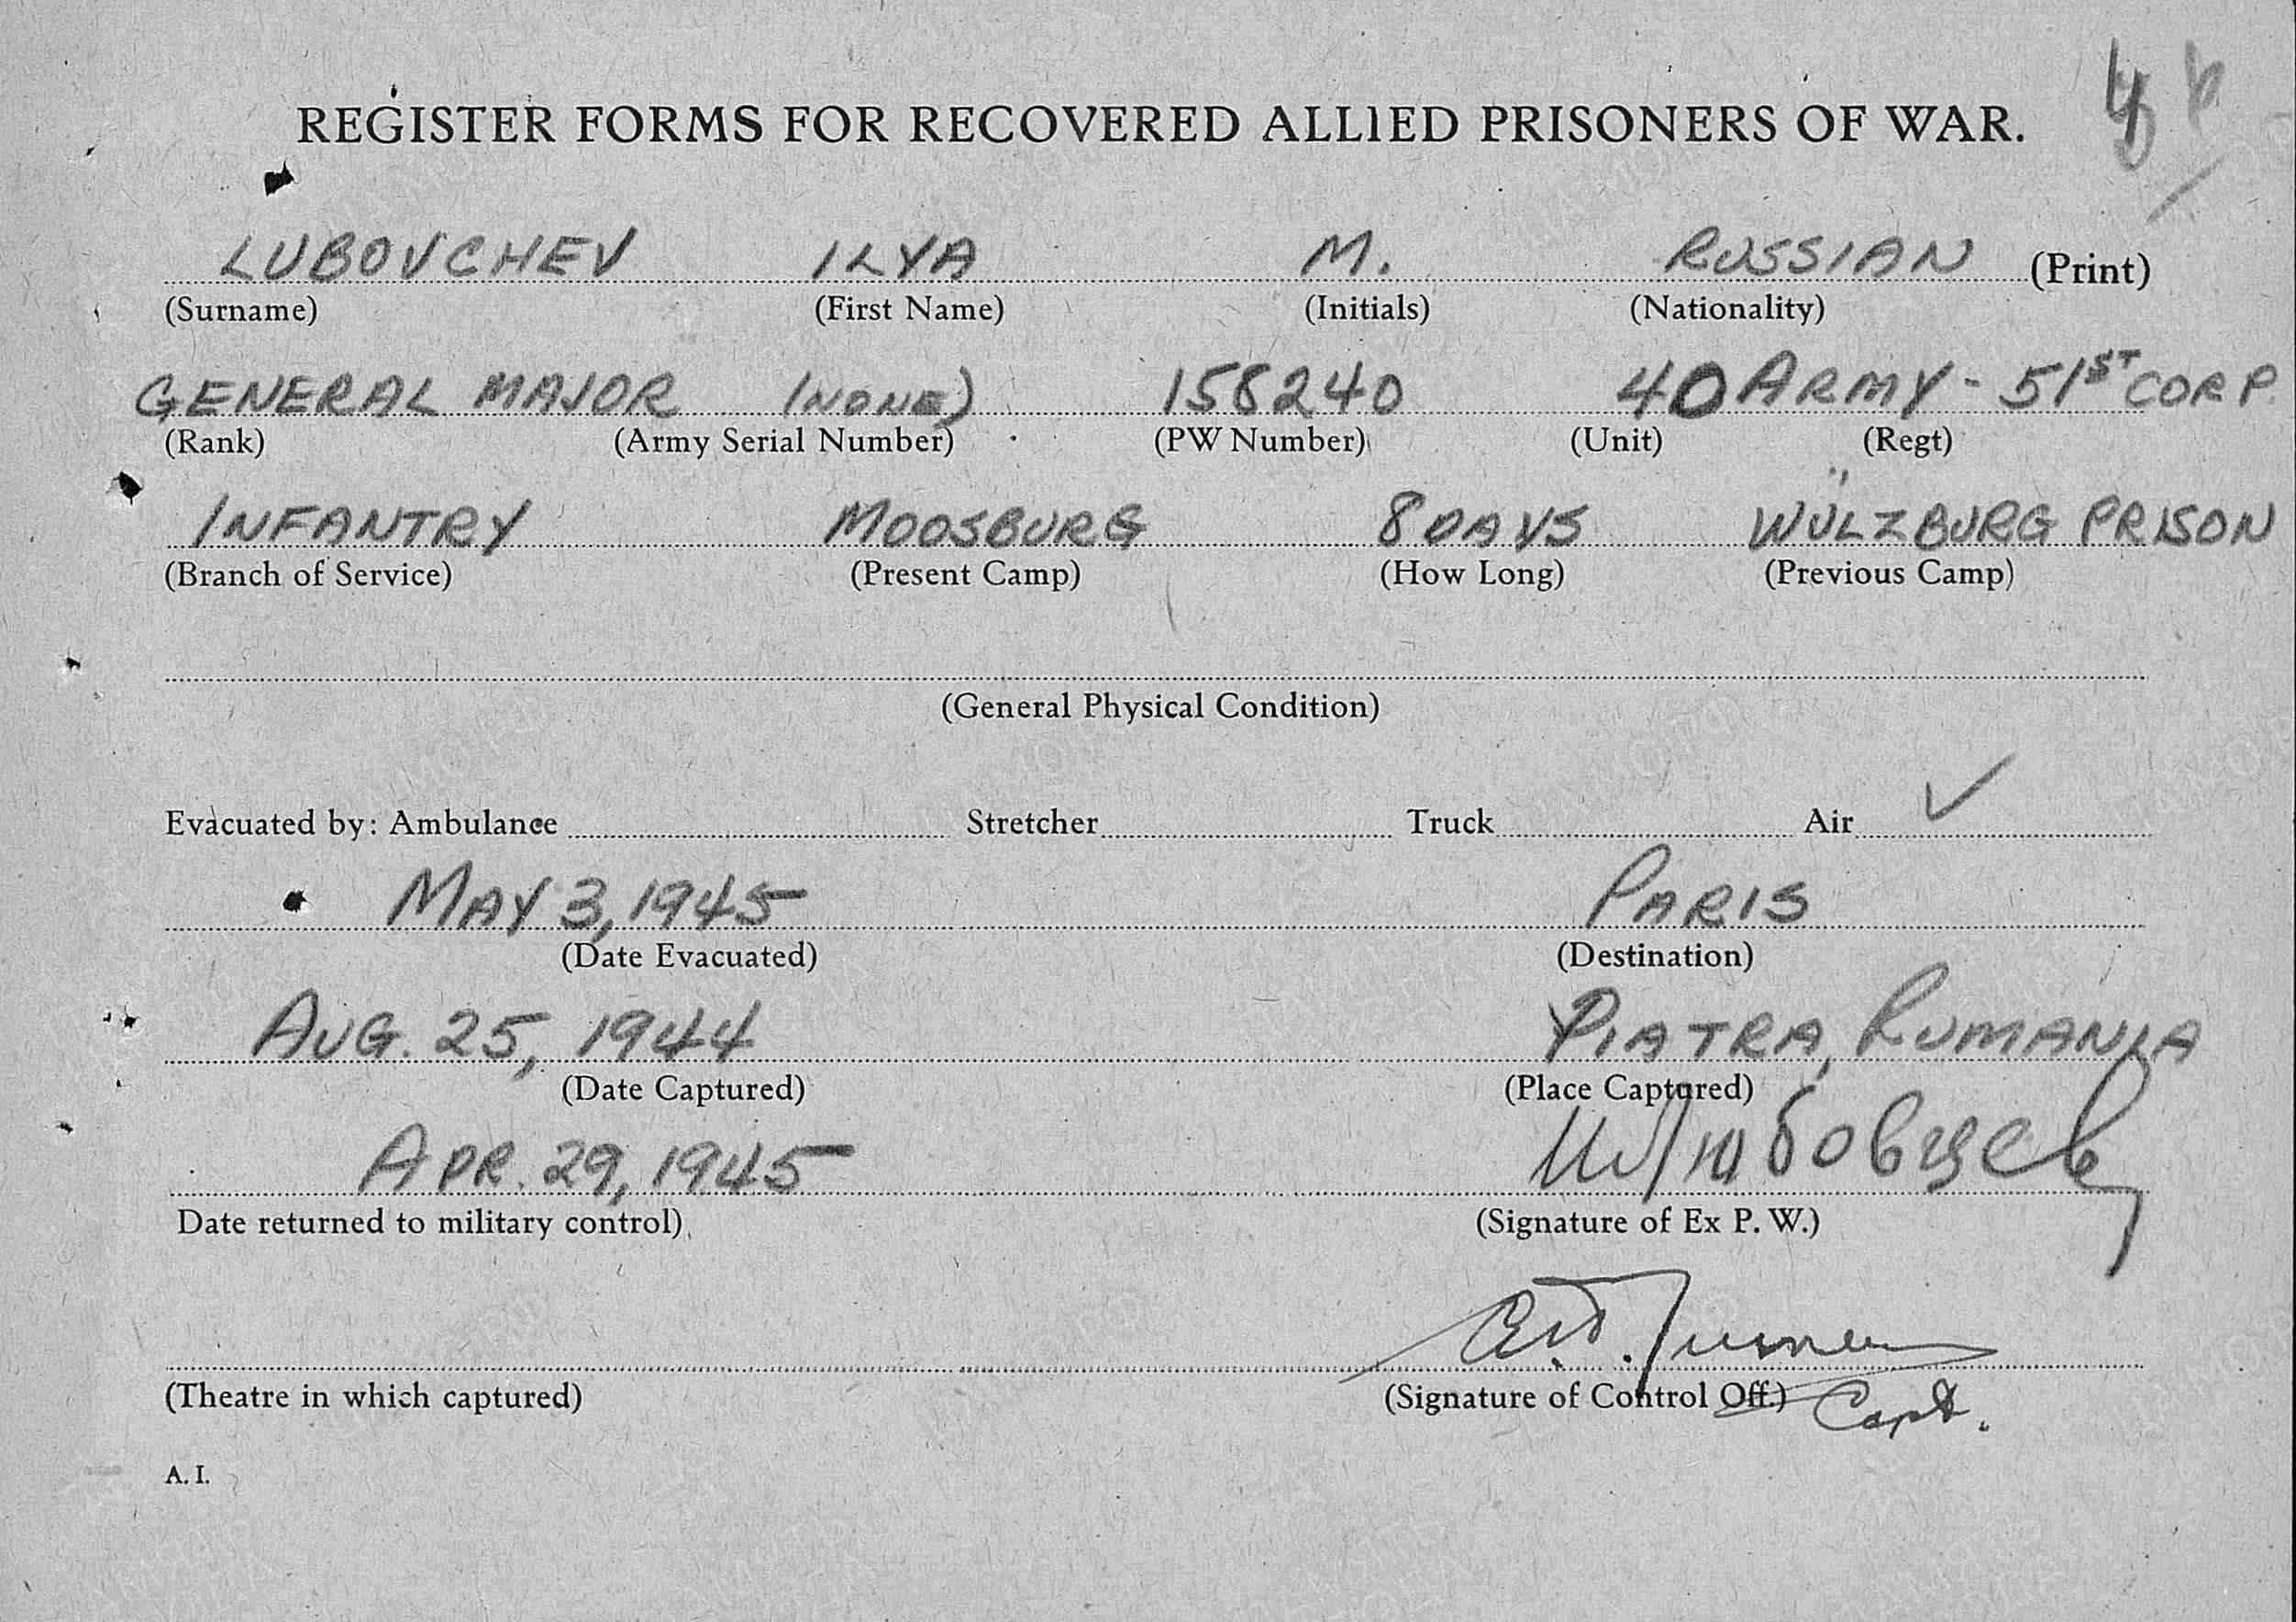 REGISTER FORMS FOR RECOVERED ALLIED PRISONERS OF WAR.
LUBOVCHEV ILYA M. RUSSIAN (Print)
(Surname) (First Name) (Initials) (Nationality)
GENERAL MAJOR (NONE) 158240 40 ARMY - 51ST CORP.
(Rank) (Army Serial Number) (PW Number) (Unit) (Regt)
INFANTRY MOOSBURG 8 DAYS WÜLZBURG PRISON
(Branch of Service) (Present Camp) (How Long) (Previous Camp)
(General Physical Condition)
Evacuated by: Ambulance Stretcher Truck Air ✓
MAY 3, 1945 PARIS
(Date Evacuated) (Destination)
AUG. 25, 1944 PIATRA, RUMANIA
(Date Captured) (Place Captured)
APR. 29, 1945 Любовцев
Date returned to military control) (Signature of Ex P. W.)
(Theatre in which captured) (Signature of Control Off.) Capt.
A. I.